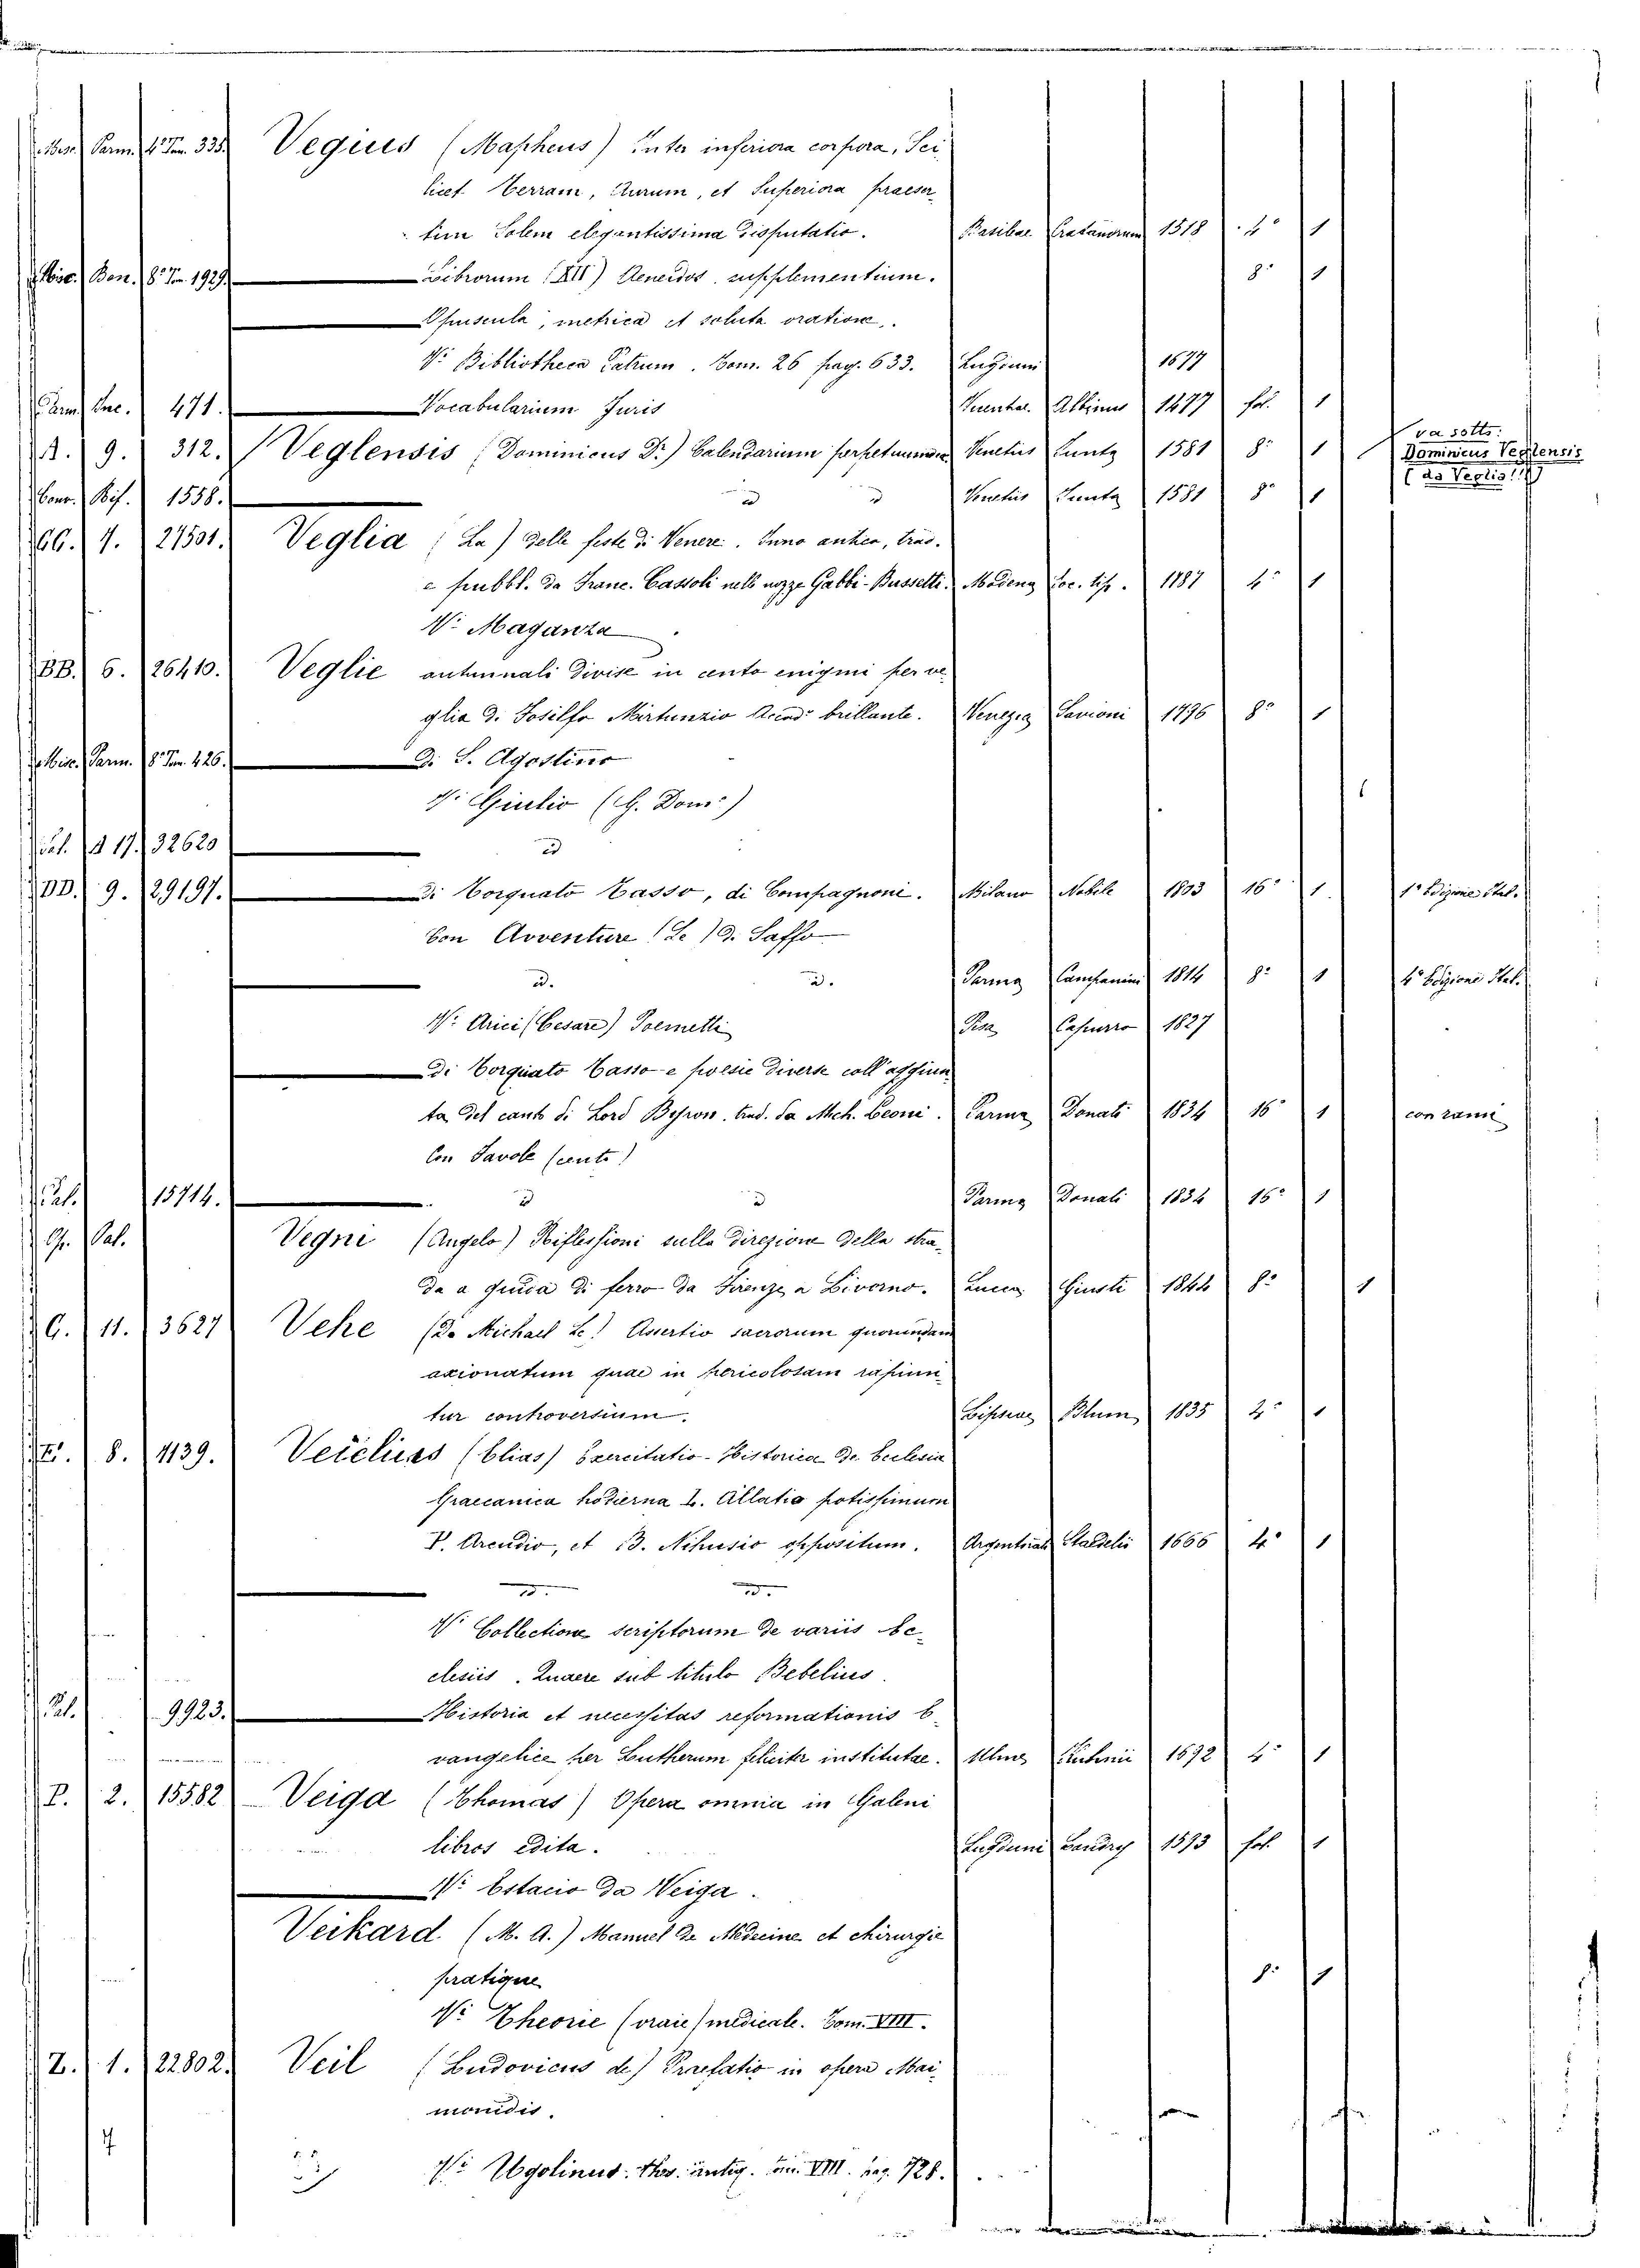 Misc. Parm. 4° Tom. 335. Vegius (Mapheus) Inter inferiora corpora, Sci
licet Terram, Aurum, et Superiora praeser
tim Solem elegantissima disputatio. Basileae Cratandrum 1518 4° 1
Misc. Bon. 8° Tom. 1929. Librorum (XII) Aeneidos supplementium. 8° 1
Opuscula, metrica et soluta oratione.
V. Bibliotheca Patrum. Tom. 26 pag. 633. Lugduni 1677
Parm. Inc. 471. Vocabularium Juris Albinus 1477 fol. 1
A. 9. 312. Veglensis (Dominicus D.) Calendarium perpetuum Venetiis Iunta 1581 8° 1 va sotto: Dominicus Veglensis (da Veglia!!!)
Conv. Bif. 1558. id id Venetiis Iunta 1581 8° 1
CC. 4. 27501. Veglia (La) delle feste di Venere. Inno antico, trad.
e pubbl. da Franc. Cassoli nelle nozze Gabbi-Bussetti. Modena Soc. tip. 1787 4° 1
V. Maganza
BB. 6. 26410. Veglie autunnali divise in cento enigmi per ve
glia di Fosilfo Mirtunzio Accad. brillante. Venezia Savioni 1796 8° 1
Misc. Parm. 8° Tom. 426. Di S. Agostino
V. Giulio (G. Dom.)
Pal. 17. 32620 id
DD. 9. 29197. Di Torquato Tasso, di Compagnoni. Milano Nobile 1803 16° 1 1° Edizione Ital.
Con Avventure (Le) di Saffo
id. id. Parma Campanini 1814 8° 1 4° Edizione Ital.
V. Arici (Cesare) Poemetti Pisa Capurro 1827
Di Torquato Tasso e poesie diverse coll'aggiun
ta del canto di Lord Byron, trad. da Mich. Leoni. Parma Donati 1834 16° 1 con rami
Con Tavole (cento)
Pal. 15714. id id Parma Donati 1834 16° 1
Gr. Pal. Vegni (Angelo) Riflessioni sulla direzione della stra
da a guida di ferro da Firenze a Livorno. Lucca Giusti 1844 8° 1
G. 11. 3627 Vehe (De Michael Le) Assertio sacrorum quorundam
axionatum quae in pericolosam rapiun
tur controversium. Lipsiae Blum 1835 2° 1
E. 8. 4139. Veielius (Elias) Exercitatio-Historica De Ecclesia
Graecanica hodierna L. Allatio potissimum
P. Arcudio, et B. Nihusio oppositum. Argentinae Staedelii 1666 4° 1
id. id.
V. Collectione scriptorum de variis Ec
clesiis. Quaere sub titulo Bebelius.
Pal. 9923. Historia et necessitas reformationis E
vangelice per Lutherum feliciter institutae. Ulmae Kuhnii 1692 4° 1
P. 2. 15582 Veiga (Thomas) Opera omnia in Galeni
libros edita. Lugduni 1593 fol. 1
V. Estacio da Veiga.
Veikard (M. A.) Manuel de Médecine et chirurgie
pratique 8° 1
V. Theorie (vraie) medicale. Tom. VIII.
Z. 1. 22802. Veil (Ludovicus de) Praefatio in opera Mai
monidis.
V. Ugolinus. Thes. antiq. Tom. VIII. pag. 728.